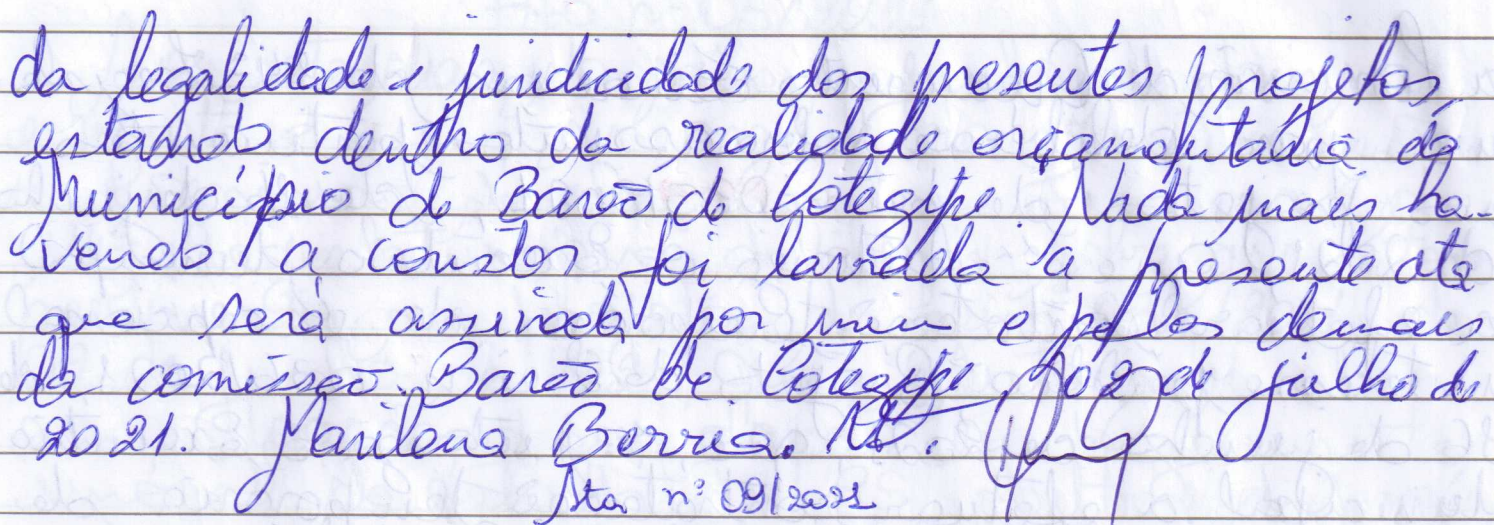 da legalidade e juridicidade dos presentes projetos,
estando dentro da realidade orçamentária do
Município de Barão de Cotegipe. Nada mais ha-
vendo a constar foi lavrada a presente ata
que será assinada por mim e pelos demais
da comissão. Barão de Cotegipe, 02 de julho de
2021. Marilena Berria.
Ata nº 09/2021